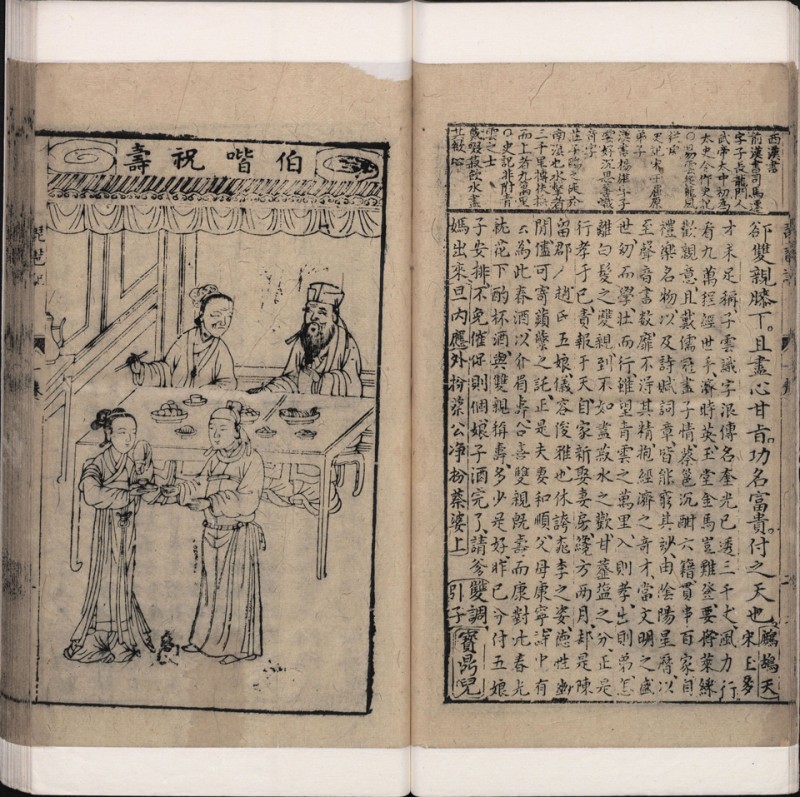 西漢書
前漢書司馬遷
字子長龍門人
武帝太中初為
太史令作史記
○易雲從龍風
從虎
史記宋玉屈原
弟子
漢書楊雄字子
雲好沉思善識
奇字
莊子鵬之徙於
南溟也水擊者
三千里摶扶搖
而上者九萬里
○史記非附青
雲之士
啜菽飲水盡
卻雙親膝下。且盡心甘旨。功名富貴。付之天也。鷓鴣天宋玉多
才未足稱子雲識字浪傳名奎光已透三千丈風力行
看九萬程經世手濟時英玉堂金馬豈難登要將萊綵
歡親意且戴儒冠盡子情蔡邕沉酣六籍貫串百家自
禮樂名物以及詩賦詞章皆能窮其妙由陰陽星曆以
至聲音書數靡不得其精抱經濟之奇才當文明之盛
世幼而學壯而行雖望青雲之萬里入則孝出則弟怎
離白髮之雙親到不如盡菽水之歡甘虀鹽之分正是
行孝于己責報于天自家新娶妻房纔方兩月却是陳
留郡人趙氏五娘儀容俊雅也休誇桃李之姿德性幽
閒儘可寄蘋蘩之託正是夫妻和順父母康寧詩中有
云為此春酒以介眉壽今喜雙親既壽而康對此春光
就花下酌杯酒與雙親稱壽多少是好昨已分付五娘
子安排不免催促則個娘子酒完了請爹雙調
媽出來旦內應外扮蔡公淨扮蔡婆上引子寶鼎兒
伯喈祝壽